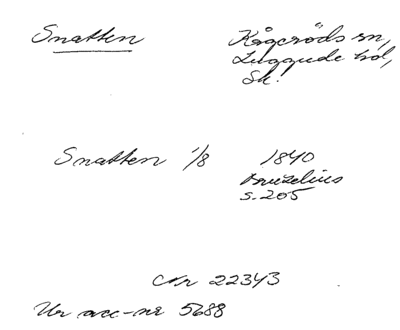 Snatten Kågeröds sn,
Luggude hd,
Sk.
Snatten 1/8 1840
Bruzelius
s. 205
Nr 22343
Ur acc-nr 5688